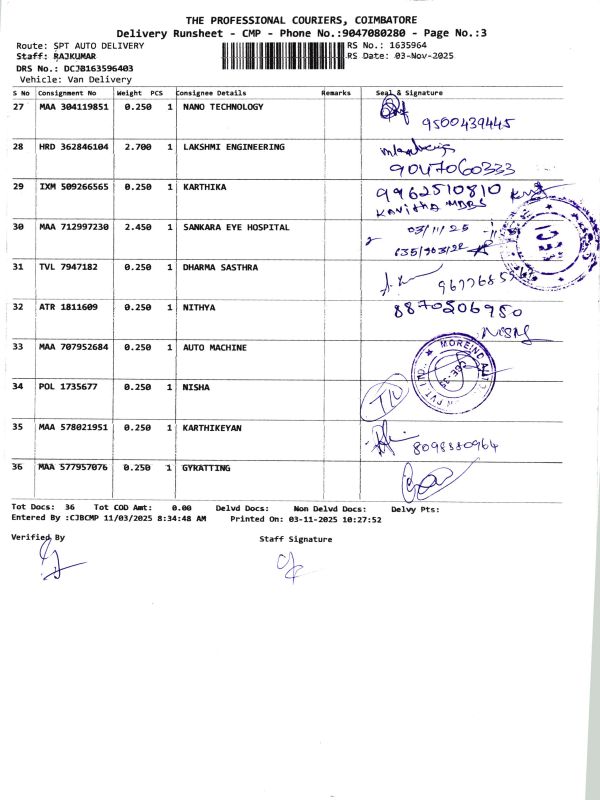 THE PROFESSIONAL COURIERS, COIMBATORE
Delivery Runsheet - CMP - Phone No.:9047080280 - Page No.:3
Route: SPT AUTO DELIVERY RS No.: 1635964
Staff: RAJKUMAR RS Date: 03-Nov-2025
DRS No.: DCJB163596403
Vehicle: Van Delivery
S No Consignment No Weight PCS Consignee Details Remarks Seal & Signature
27 MAA 304119851 0.250 1 NANO TECHNOLOGY
9500439445
28 HRD 362846104 2.700 1 LAKSHMI ENGINEERING
9047060333
29 IXM 509266565 0.250 1 KARTHIKA 9962510810
Kavitha MBBS
30 MAA 712997230 2.450 1 SANKARA EYE HOSPITAL 03/11/25
31 TVL 7947182 0.250 1 DHARMA SASTHRA
32 ATR 1811609 0.250 1 NITHYA 8870506950
33 MAA 707952684 0.250 1 AUTO MACHINE
34 POL 1735677 0.250 1 NISHA
35 MAA 578021951 0.250 1 KARTHIKEYAN
8098880964
36 MAA 577957076 0.250 1 GYKATTING
Tot Docs: 36 Tot COD Amt: 0.00 Delvd Docs: Non Delvd Docs: Delvy Pts:
Entered By :CJBCMP 11/03/2025 8:34:48 AM Printed On: 03-11-2025 10:27:52
Verified By Staff Signature